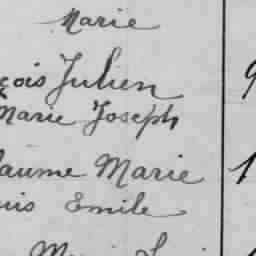 Marie
çois Julien 9
Marie Joseph
laume Marie 1
uis Emile